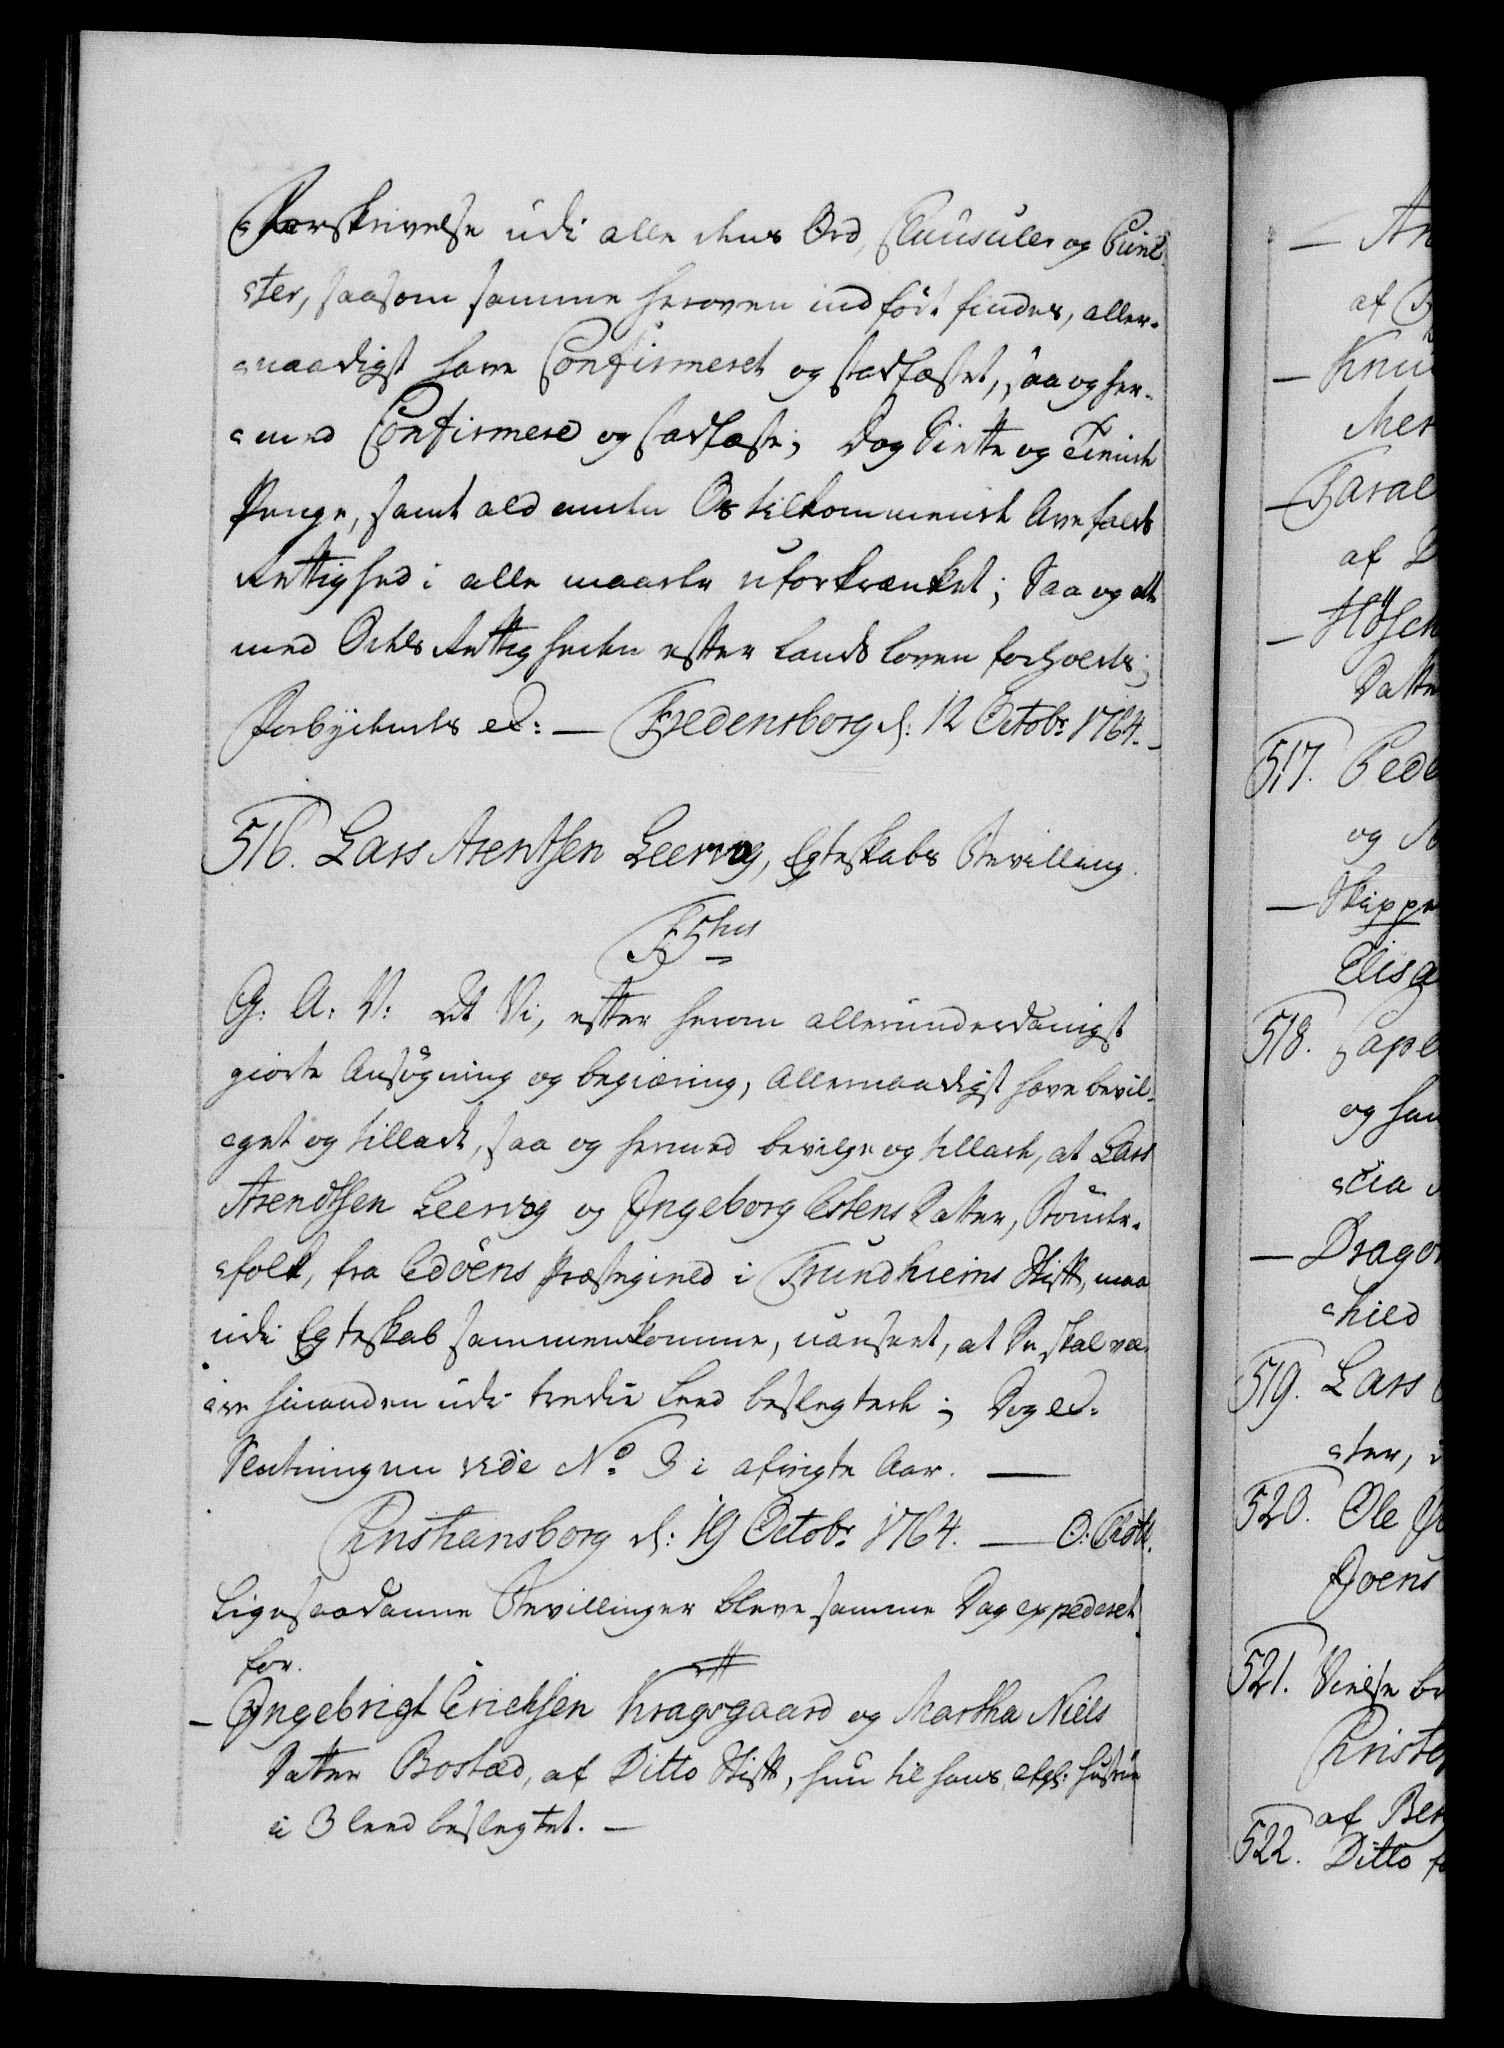 Forskrivelse udi alle dens Ord, Clausuler og Punc-
ster, saasom samme heroven indført findes, aller-
naadigst have Confirmeret og stadfæstet, saa og her-
med Confirmere og stadfæste; Dog Siette og Tiende
Penge, samt ald anden Os tilkommende Arvefalds
Rettighed i alle maader uforkrænket; Saa og at
med Odels Rettigheden efter Lands Loven forholdes;
Forbydendes etc: — Fredensborg d: 12 Octobr 1764.—
516. Lars Arentsen Leervog, Egteskabs Bevilling.
F5tus
G: A: V: At Vi, efter herom allerunderdanigst
giorte Ansøgning og begiæring, Allernaadigst have bevil-
get og tilladt, saa og hermed bevilge og tillade, at Lars
Arendtsen Leervog og Ingeborg Estens Datter, Bønder-
folk, fra Edøens Præstegield i Trundhiems Stift, maa
udi Egteskab sammenkomme, uanseet, at De skal væ-
re hinanden udi tredie Leed beslegtede; Dog etc.
Slutningen vide No 3 i afvigte Aar. —
Christiansborg d: 19 Octobr 1764. — O: Thott.
Ligesaadanne Bevillinger bleve samme Dag expederet
for.
— Ingebrigt Erichsen Kragsgaard og Martha Niels
Datter Bostad, af Ditto Stift, hun til hans afg: Hustrue
i 3 Leed beslegtet. —
— An
af
— Knu
Mer
— Taral
af D
— Høsch
Datte
517. Pede
og
— Skippe
Elisa
518. Cape
og han
cia
— Drago
hild
519. Lars
ster,
520. Ole
Joens
521. Vielse be
Christo
af Ber
522. Ditto fo